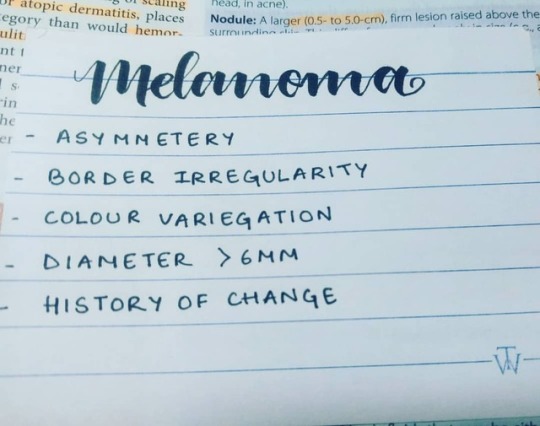 or atopic dermatitis, places
egory than would hemor-
of scaling
head, in acne).
Nodule: A larger (0.5- to 5.0-cm), firm lesion raised above the
surrounding
Melanoma
- ASYMMETERY
- BORDER IRREGULARITY
- COLOUR VARIEGATION
- DIAMETER >6MM
- HISTORY OF CHANGE